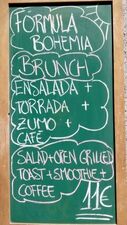 FÓRMULA
BOHEMIA
BRUNCH
ENSALADA +
TORRADA +
ZUMO +
CAFÉ
SALAD+OPEN GRILLED
TOAST+SMOOTHIE+
COFFEE
11€